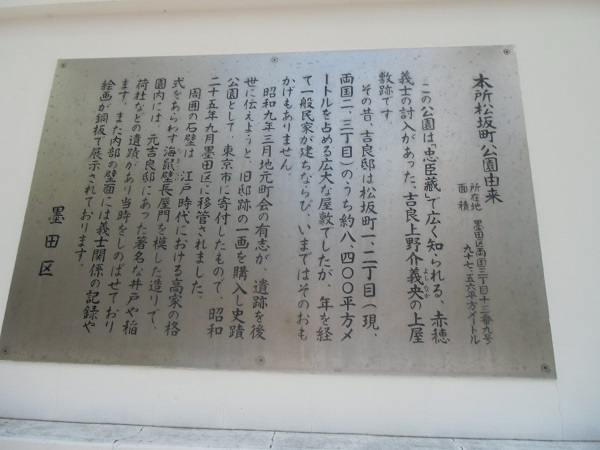 本所松坂町公園由来
所在地 墨田区両国三丁目十三番九号
面積 九十七・五六平方メートル
この公園は「忠臣蔵」で広く知られる、赤穂
義士の討入があった、吉良上野介義央の上屋
よしなか
敷跡です
その昔、吉良邸は松坂町一、二丁目(現、
両国二、三丁目)のうち約八、四〇〇平方メ
ートルを占める広大な屋敷でしたが、年を経
て一般民家が建ちならび、いまではそのおも
かげもありません
昭和九年三月地元町会の有志が、遺跡を後
世に伝えようと、旧邸跡の一画を購入し史蹟
公園として、東京市に寄付したもので、昭和
二十五年九月墨田区に移管されました。
周囲の石壁は、江戸時代における高家の格
式をあらわす海鼠壁長屋門を模した造りで、
園内には、元吉良邸にあった著名な井戸や稲
荷社などの遺蹟があり当時をしのばせており
ます。また内部の壁面には義士関係の記録や
絵画が銅板で展示されております。
墨田区